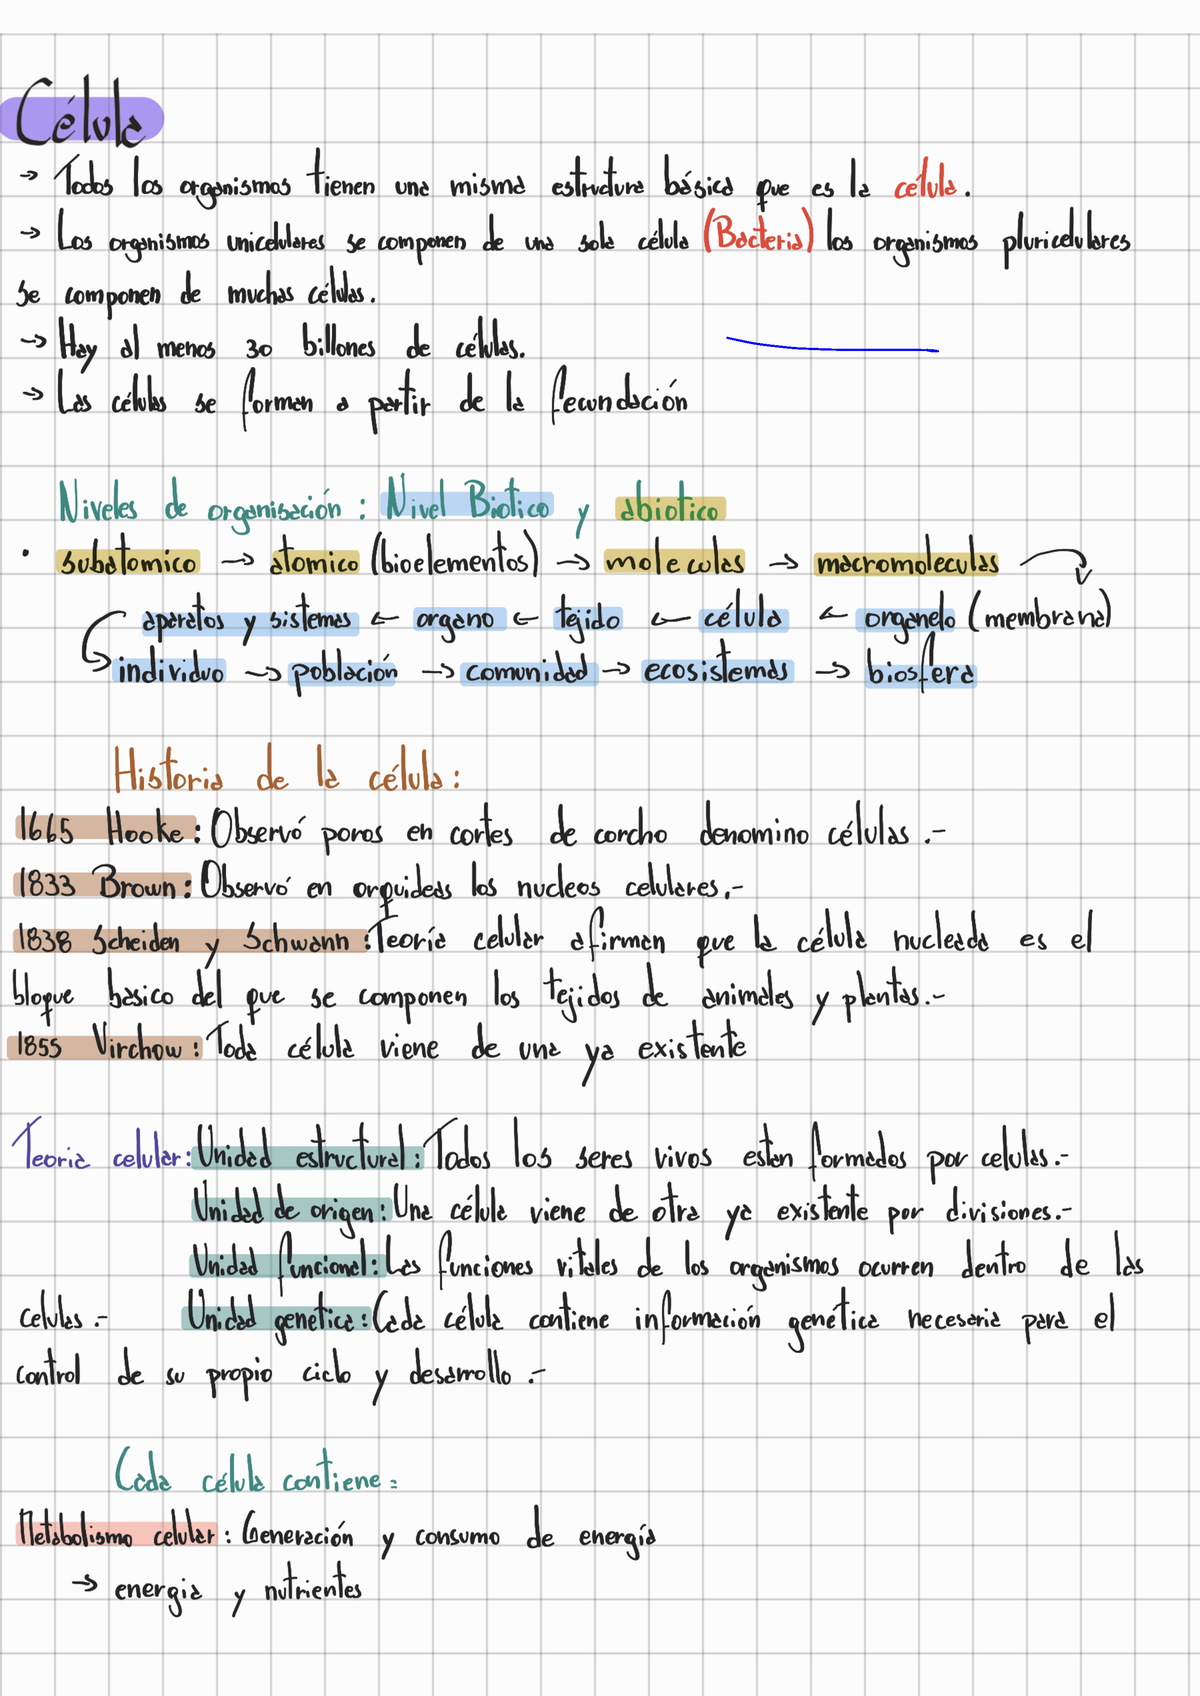 Célula
→ Todos los organismos tienen una misma estructura básica que es la célula.
→ Los organismos unicelulares se componen de una sola célula (Bacteria) los organismos pluricelulares
se componen de muchas células.
→ Hay al menos 30 billones de células.
→ Las células se forman a partir de la fecundación
Niveles de organización : Nivel Biotico y abiotico
· subatomico → atomico (bioelementos) → moleculas → macromoleculas
aparatos y sistemas ← organo ← tejido ← célula ← organelo (membrana)
individuo → población → comunidad → ecosistemas → biosfera
Historia de la célula :
1665 Hooke : Observó poros en cortes de corcho denomino células .-
1833 Brown : Observó en orquideas los nucleos celulares.-
1838 Scheiden y Schwann : Teoría celular afirman que la célula nucleada es el
bloque basico del que se componen los tejidos de animales y plantas.-
1855 Virchow : Toda célula viene de una ya existente
Teoria celular : Unidad estructural : Todos los seres vivos estan formados por celulas.-
Unidad de origen : Una célula viene de otra ya existente por divisiones.-
Unidad funcional : Las funciones vitales de los organismos ocurren dentro de las
celulas .- Unidad genetica : Cada célula contiene información genética necesaria para el
control de su propio ciclo y desarrollo .-
Cada célula contiene :
Metabolismo celular : Generación y consumo de energía
→ energia y nutrientes